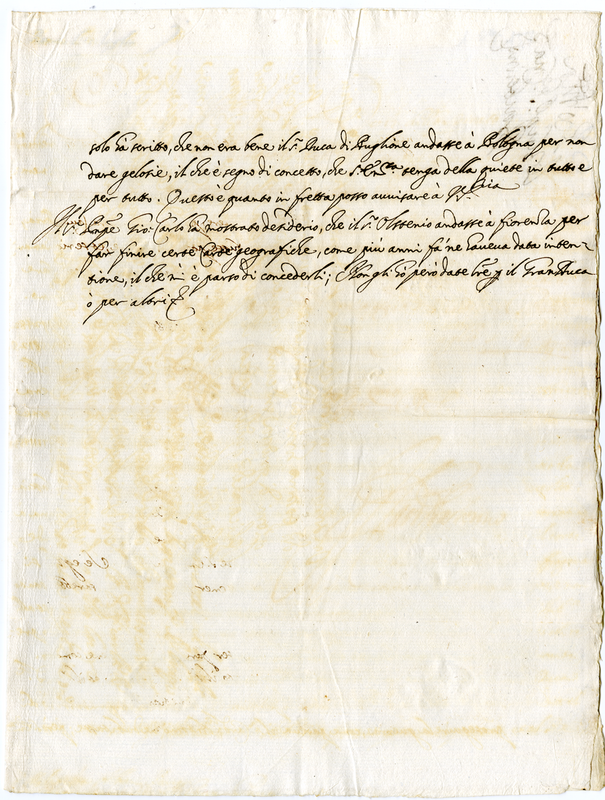 solo hà scritto, che non era bene il s.r Duca di Buglione andasse à Bologna per non
dare gelosie, il che è segno di concetto, che S. Em.za tenga della quiete in tutto e
per tutto. Questo è quanto in fretta posso avvisare à
Il s.r Prnpe Gio: Carlo hà mostrato desiderio, che il s.r Olstenio andasse a fiorenza per
far finire certe Carte geografiche, come più anni fà ne haueua data inten-
tione, il che mi è parso di concederli; Non gli hò però date lre p il Gran Duca
ò per altri